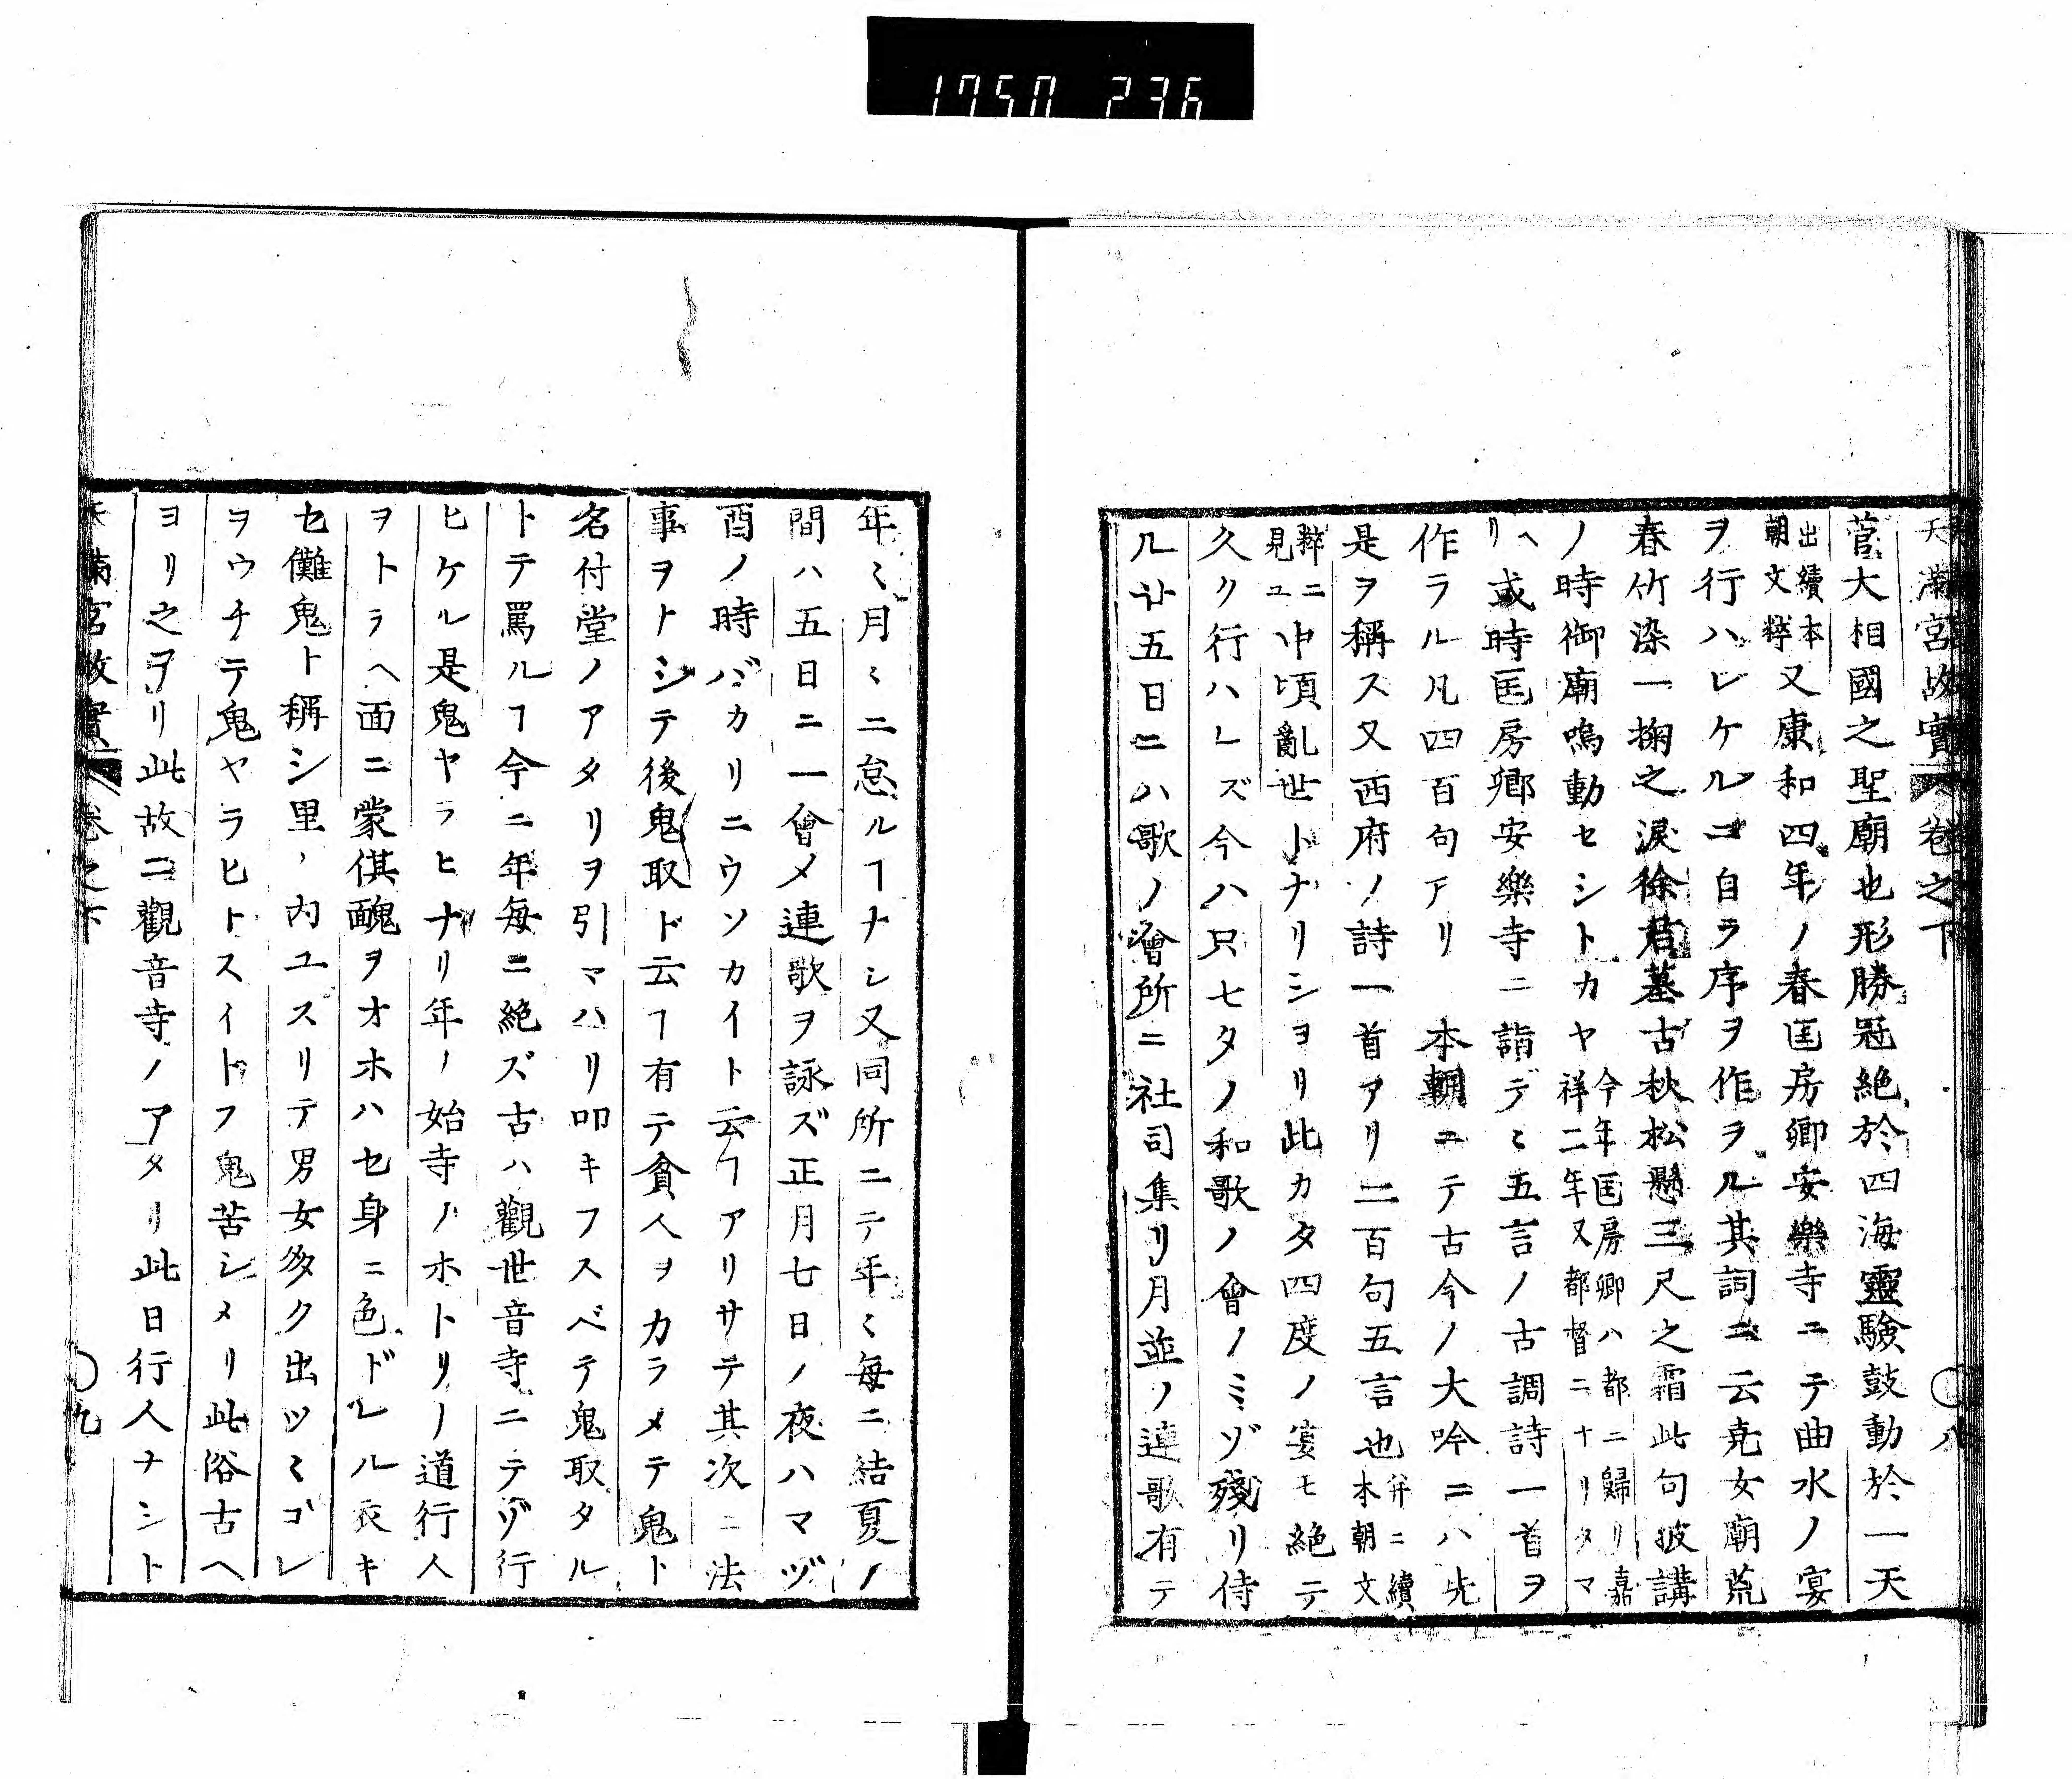 1750 236
天満宮故實 卷之下 〇八
菅大相國之聖廟也形勝冠絶於四海靈驗鼓動於一天
出續本朝文粹又康和四年ノ春匡房卿安樂寺ニテ曲水ノ宴
ヲ行ハレケルニ自ラ序ヲ作ラル其詞ニ云尭女廟荒
春竹染一掬之淚徐君墓古秋松懸三尺之霜此句披講
ノ時御廟鳴動セシトカヤ今年匡房卿ハ都ニ歸リ嘉祥二年又都督ニナリタマ
ヘリ或時匡房卿安樂寺ニ詣デヽ五言ノ古調詩一首ヲ
作ラル凡四百句アリ 本朝ニテ古今ノ大吟ニハ先
是ヲ稱ス又西府ノ詩一首アリ二百句五言也并ニ續本朝文
粹ニ見ユ中頃亂世トナリシヨリ此カタ四度ノ宴モ絶テ
久ク行ハレズ今ハ只七夕ノ和歌ノ會ノミゾ殘リ侍
ル廿五日ニハ歌ノ會所ニ社司集リ月並ノ連歌有テ
年〻月〻ニ怠ルヿナシ又同所ニテ年〻每ニ結夏ノ
間ハ五日ニ一會メ連歌ヲ詠ズ正月七日ノ夜ハマヅ
酉ノ時バカリニウソカイト云ヿアリサテ其次ニ法
事ヲトシテ後鬼取ド云ヿ有テ貧人ヲカラメテ鬼ト
名付堂ノアタリヲ引マハリ叩キフスベテ鬼取タル
トテ罵ルヿ今ニ年每ニ絶ズ古ハ觀世音寺ニテゾ行
ヒケル是鬼ヤラヒナリ年ノ始寺ノホトリノ道行人
ヲトラヘ面ニ蒙倛醜ヲオホハセ身ニ色ドレル衣キ
セ儺鬼ト稱シ里ノ内ユスリテ男女多ク出ツミゴレ
ヲウチテ鬼ヤラヒトスイトフ鬼苦シメリ此俗古ヘ
ヨリ之ヲリ此故ニ觀音寺ノアタリ此日行人ナシト
天満宮故實 卷之下 〇九